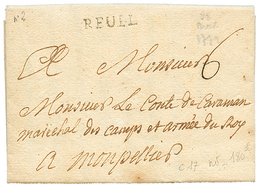 N2
REUEL
A Monsieur 6
Monsieur Le Conte de Caraman
maréchal des camps et armée du Roy
a monpellier